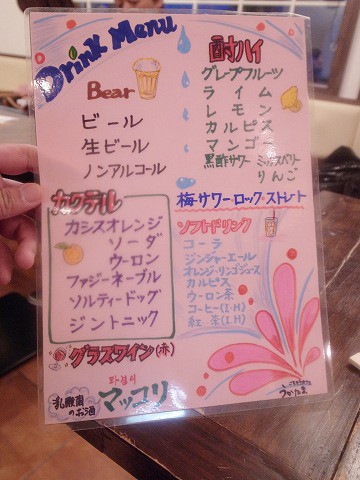 Drink Menu
Bear
ビール
生ビール
ノンアルコール
カクテル
カシスオレンジ
ソーダ
ウーロン
ファジーネーブル
ソルティードッグ
ジントニック
グラスワイン(赤)
乳酸菌
のお酒
막걸리
マッコリ
酎ハイ
グレープフルーツ
ライム
レモン
カルピス
マンゴー
黒酢サワー ミックスベリー
りんご
梅サワー・ロック・ストレート
ソフトドリンク
コーラ
ジンジャーエール
オレンジ・リンゴジュース
カルピス
ウーロン茶
コーヒー(I・H)
紅茶(I.H)